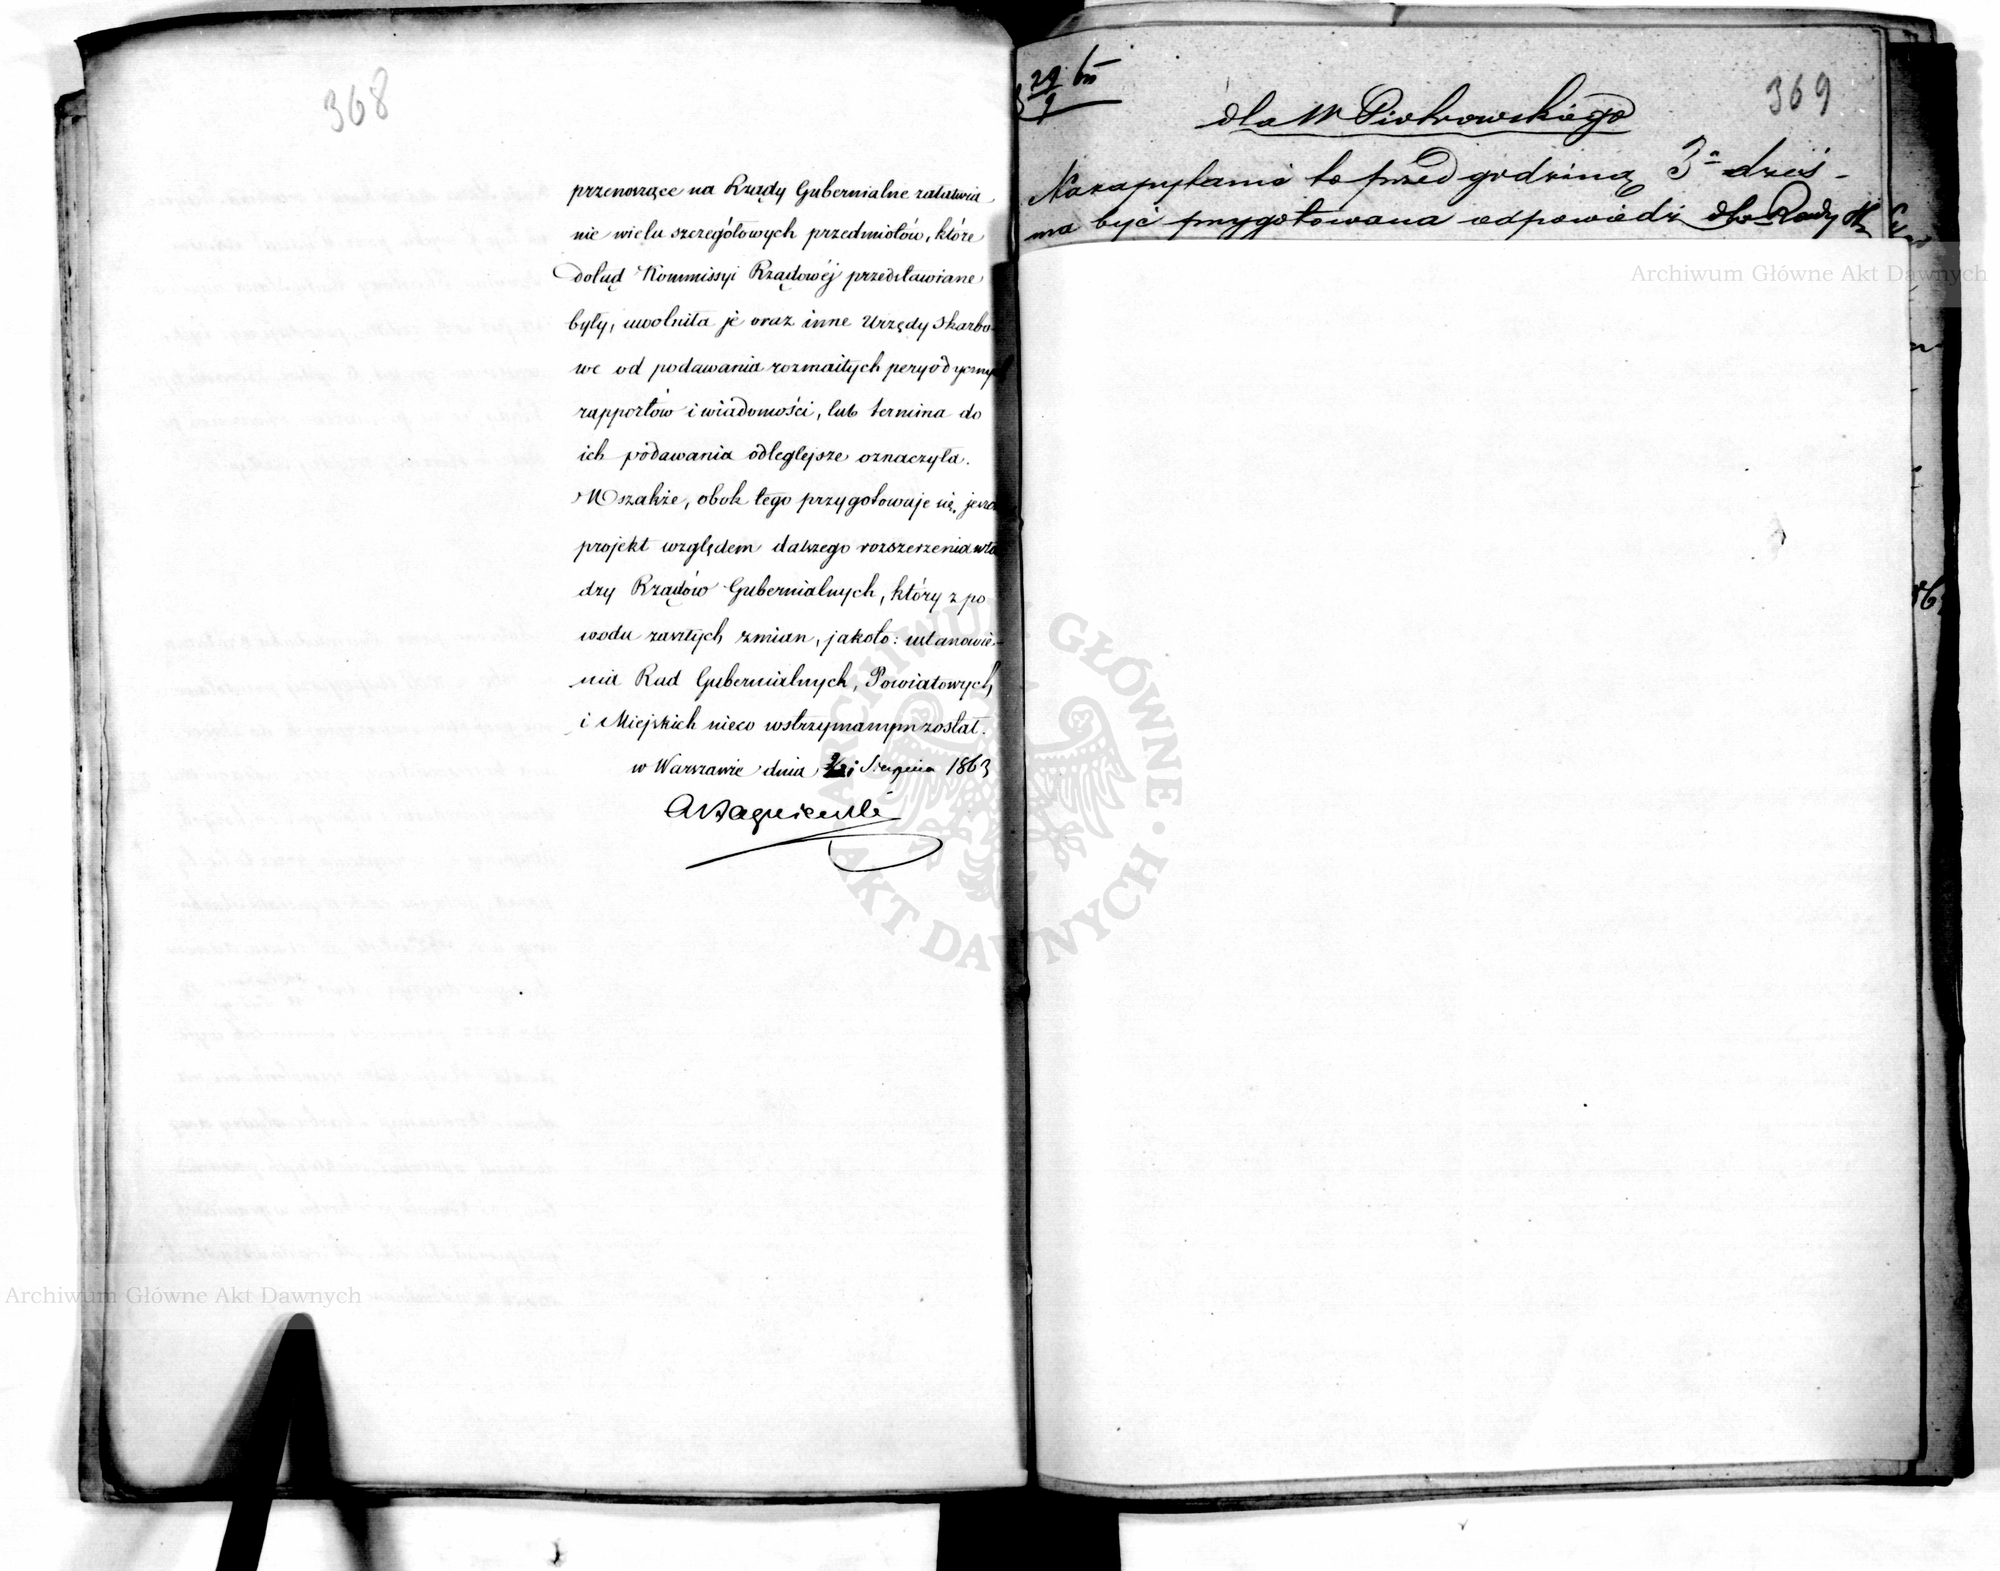 368
przenoszące na Rządy Gubernialne załatwia
nie wielu szczegółowych przedmiotów, które
dotąd Kommissyi Rządowéj przedstawiane
były, uwolniła je oraz inne Urzędy Skarbo-
we od podawania rozmaitych peryodycznych
rapportów i wiadomości, lub termina do
ich podawania odleglejsze oznaczyła.
Wszakże, obok tego przygotowuje się, jeszcze
projekt względem dalszego rozszerzenia wła
dzy Rządów Gubernialnych, który z po
wodu zaszłych zmian, jakoto: ustanowie-
nia Rad Gubernialnych, Powiatowych
i Miejskich nieco wstrzymanym został.
w Warszawie dnia Sierpnia 1863
29/9
369
dla W Piotrowskiego
Na zapytanie to przed godziną 3ą dziś -
ma być przygotowana odpowiedź dla Rady
Archiwum Główne Akt Dawnych
ARCHIWUM GŁÓWNE AKT DAWNYCH
Archiwum Główne Akt Dawnych